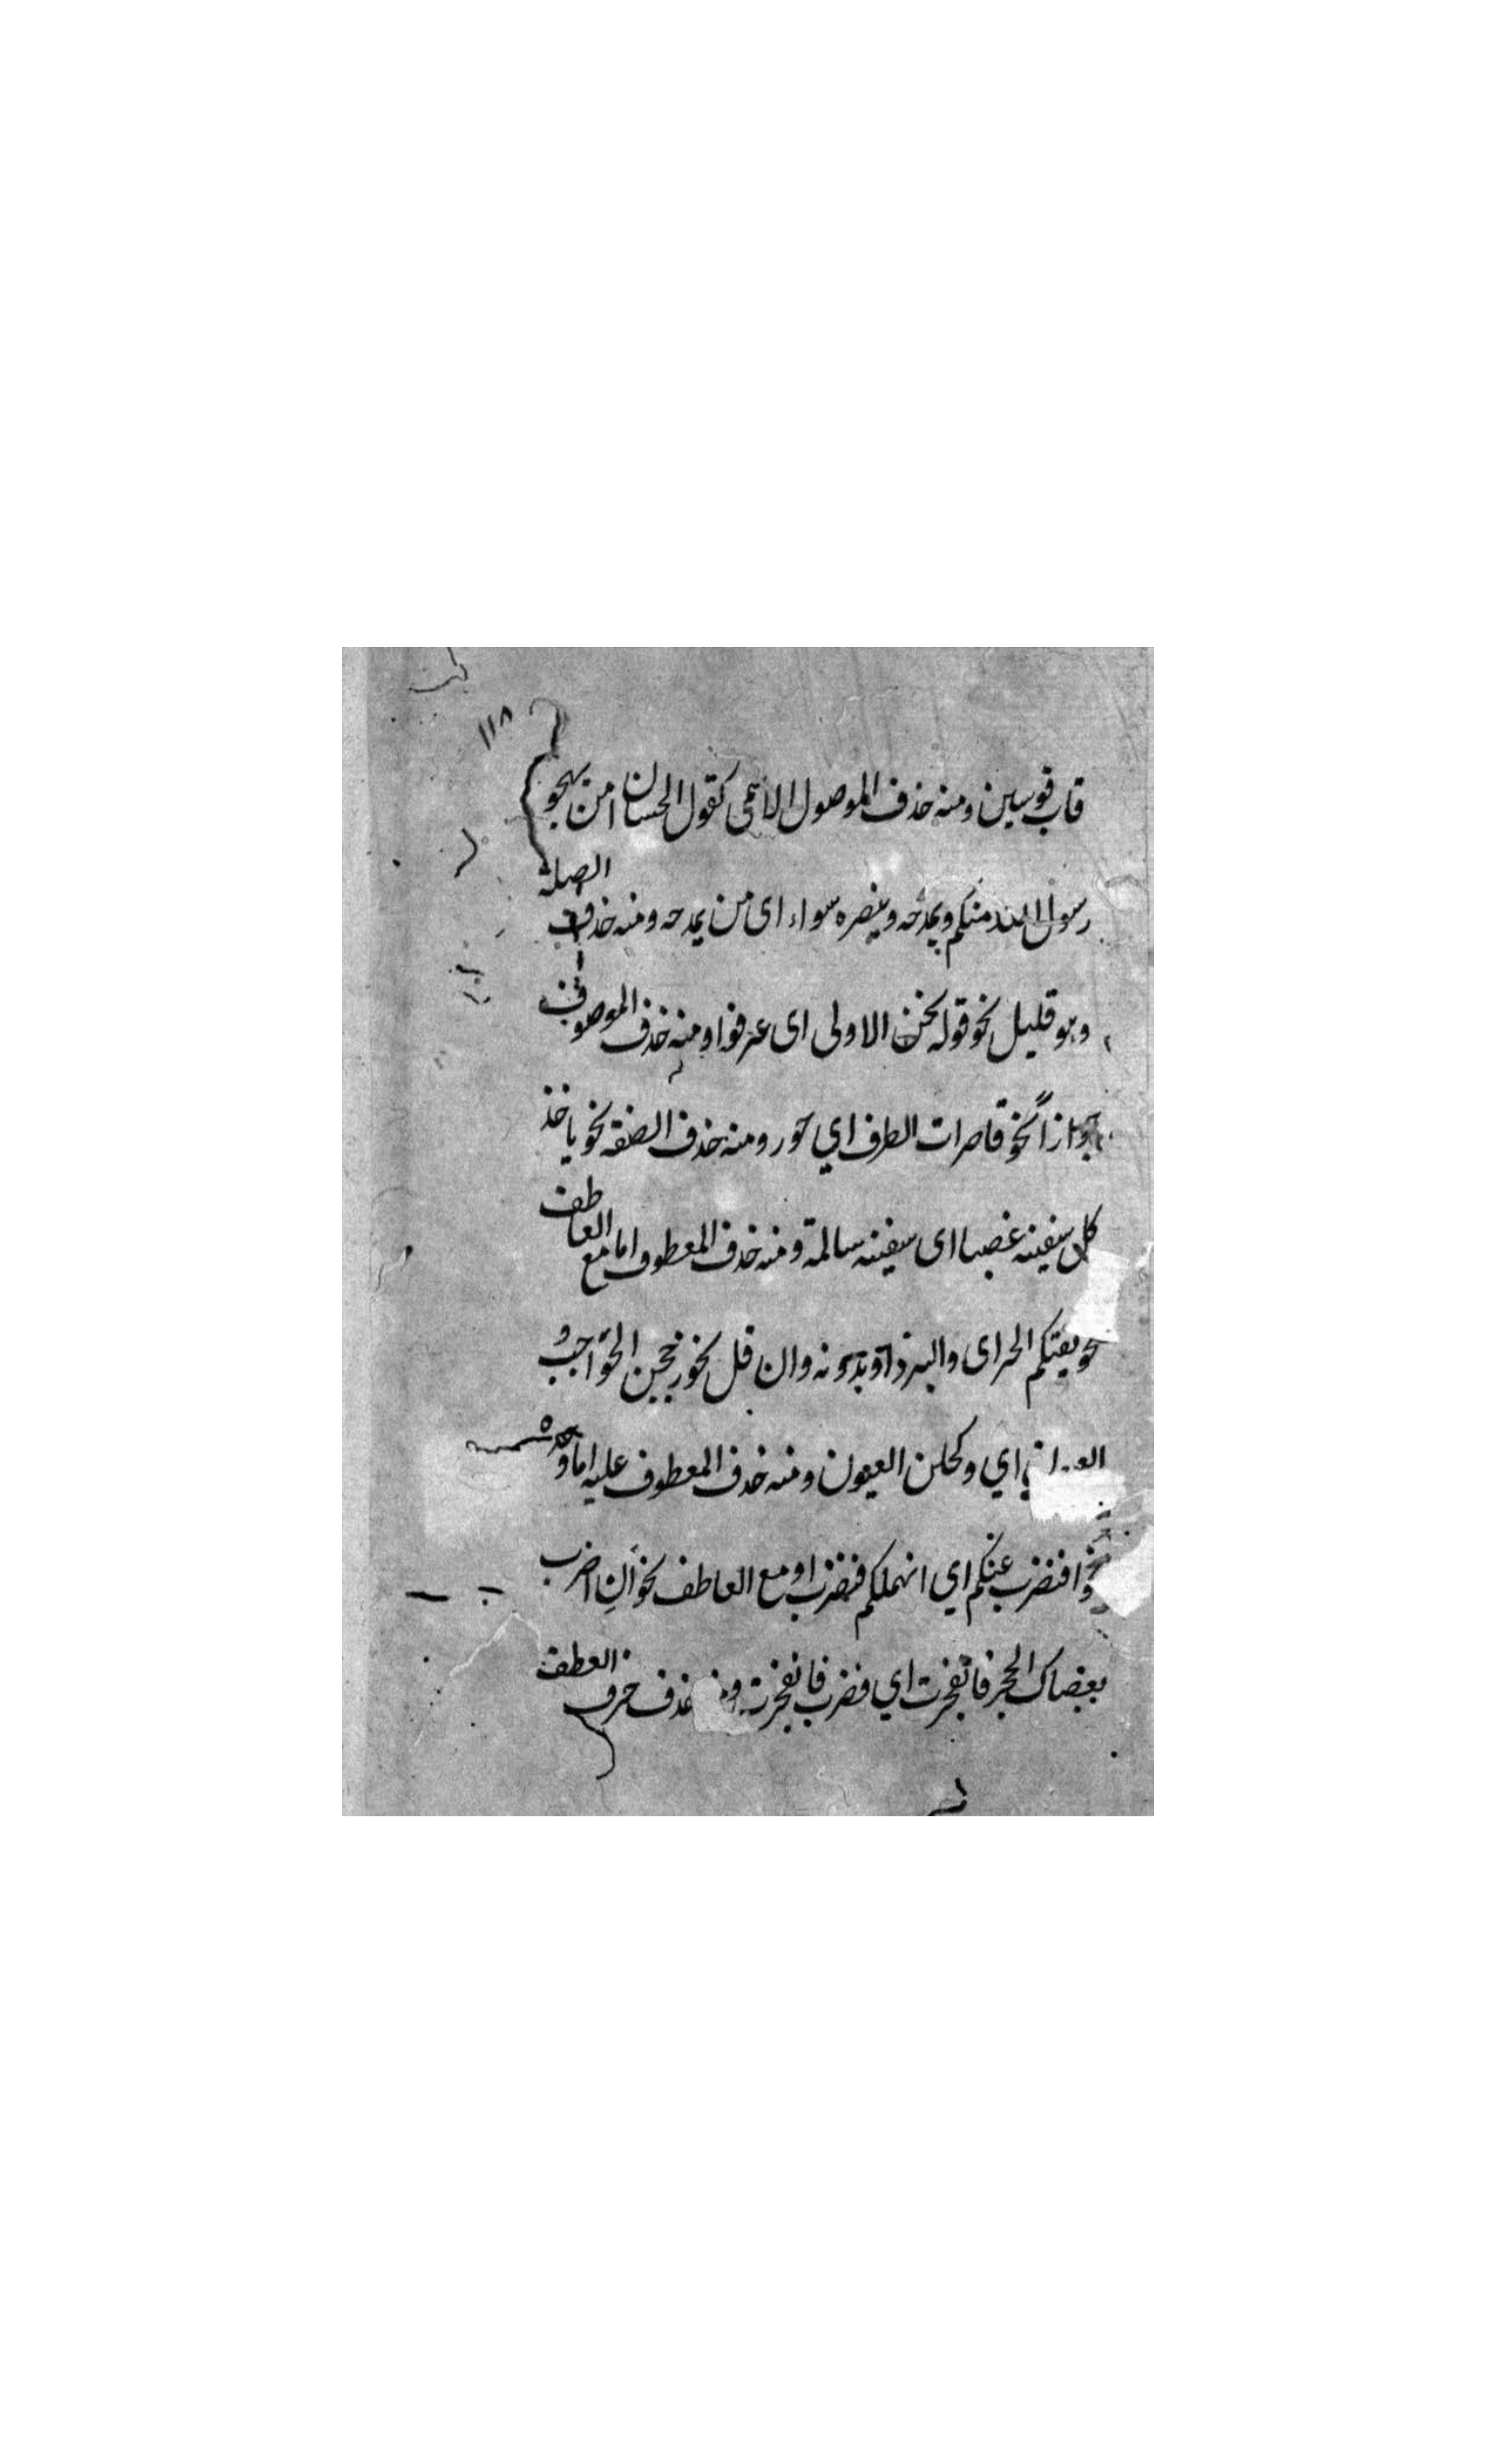 ١١٨
قاب قوسين ومنه حذف الموصول الاسمى كقول الحسان امن يهجو
رسول الله منكم ويمدحه وينصره سواء اى من يمدحه ومنه حذف الصلة
وهو قليل نحو قوله نحن الاولى اى عرفوا ومنه حذف الموصوف
جوازاً نحو قاصرات الطرف اي حور ومنه حذف الصفة نحو ياخذ
كل سفينة غصبا اى سفينة سالمة ومنه حذف المعطوف اما مع العاطف
نحو يقتكم الحر اى والبرد او بدونه وان قل نحو زججن الحواجب و
اي وكحلن العيون ومنه حذف المعطوف عليه اما وحده
نحو افنضرب عنكم اي انهملكم فنضرب او مع العاطف نحو أنِ اضرب
بعصاك الحجر فانفجرت اي فضرب فانفجرت ومنه حذف حرف العطف